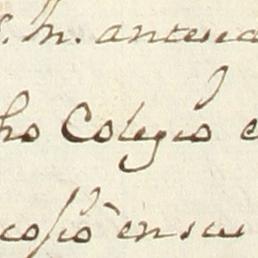 S. M. anteced
ho Colegio e
cosió en su